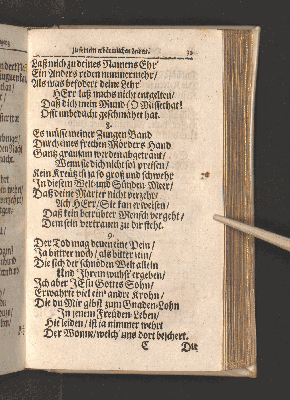 zu seinem erbärmlichen Leiden. 33
Laß mich zu deines Namens Ehr
Ein Anders reden nimmermehr/
Als was befodert deine Lehr
HErr laß michs nicht entgelten/
Daß dich mein Mund (O Missethat!
Offt unbedacht geschmähet hat.
8.
Es müsse meiner Zungen Band
Durch eines frechen Mörders Hand
Gantz grausam werden abgetrant/
Wenn sie dich nicht sol preisen/
Kein Kreutz ist ja so groß und schwehr
In diesem Welt- und Sünden Meer/
Daß deine Marter nicht verzehr/
Ach HErr/ Sie kan erweisen/
Daß kein betrübter Mensch vergeht/
Dem sein vertrauen zu dir steht.
9.
Der Tod mag denen eine Pein/
Ja bitter noch/ als bitter sein/
Die sich der schnöden Welt allein
Und Ihrem wuhst ergeben/
Ich aber JESu Gottes Sohn/
Erwahrte viel ein andre Krohn/
Die du Mir gibst zum Gnaden-Lohn
In jenem Freuden Leben/
Hie leiden/ ist ja nimmer wehrt
Der Wonne/ welch' uns dort beschert.
C Die